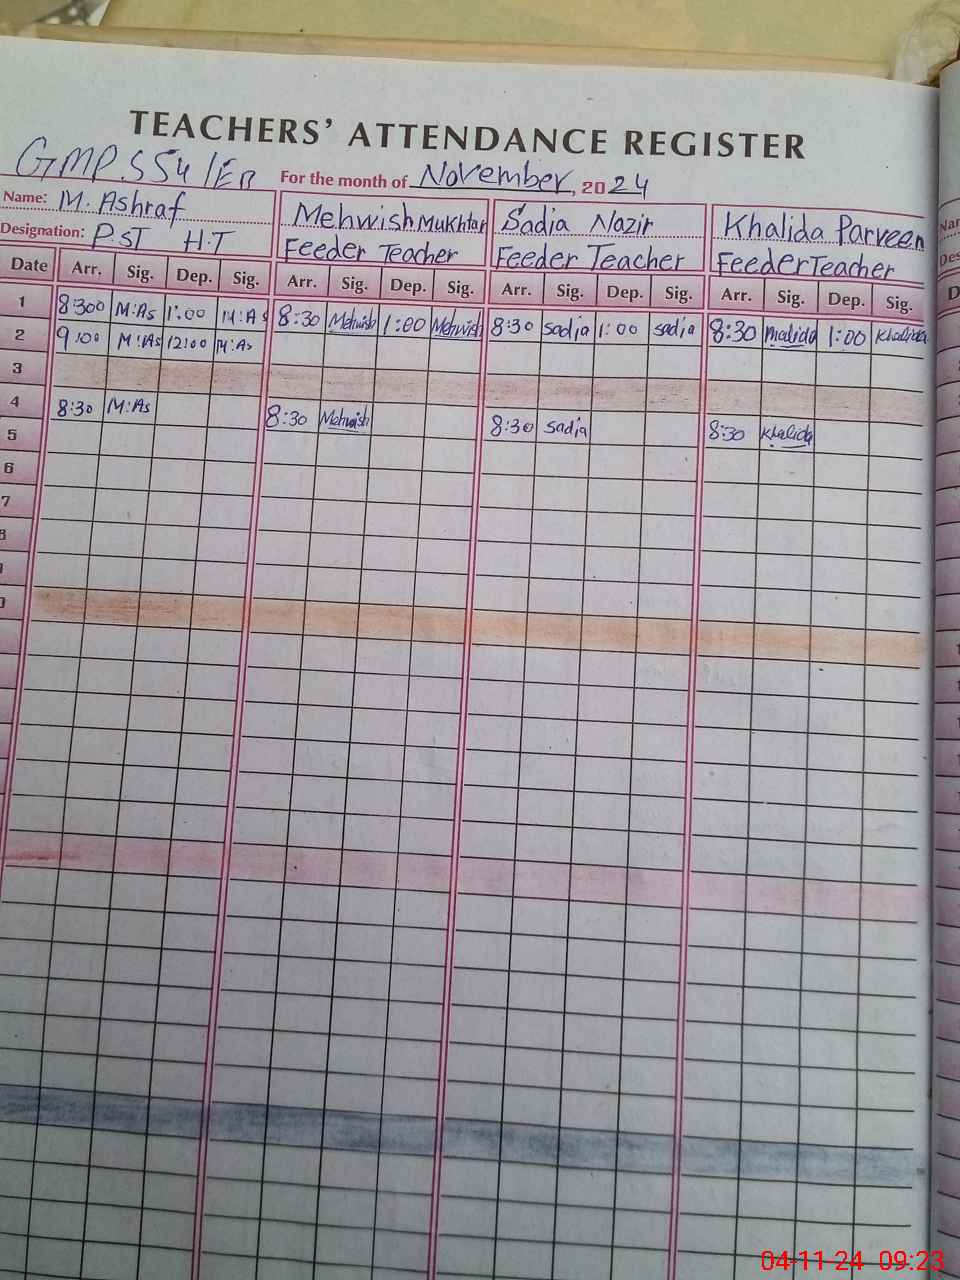 TEACHERS' ATTENDANCE REGISTER
GMP.S 54/EB For the month of November, 2024
Name: M. Ashraf Mehwish Mukhtar Sadia Nazir Khalida Parveen
Designation: P.ST H.T Feeder Teacher Feeder Teacher Feeder Teacher
Date Arr. Sig. Dep. Sig. Arr. Sig. Dep. Sig. Arr. Sig. Dep. Sig. Arr. Sig. Dep. Sig.
1 8:300 M:As 1:00 M:As 8:30 Mehwish 1:00 Mehwish 8:30 Sadia 1:00 Sadia 8:30 Khalida 1:00 Khalida
2 9:00 M:As 12:00 M:As
3
4 8:30 M:As 8:30 Mehwish 8:30 Sadia 8:30 Khalida
5
6
7
04-11-24 09:23